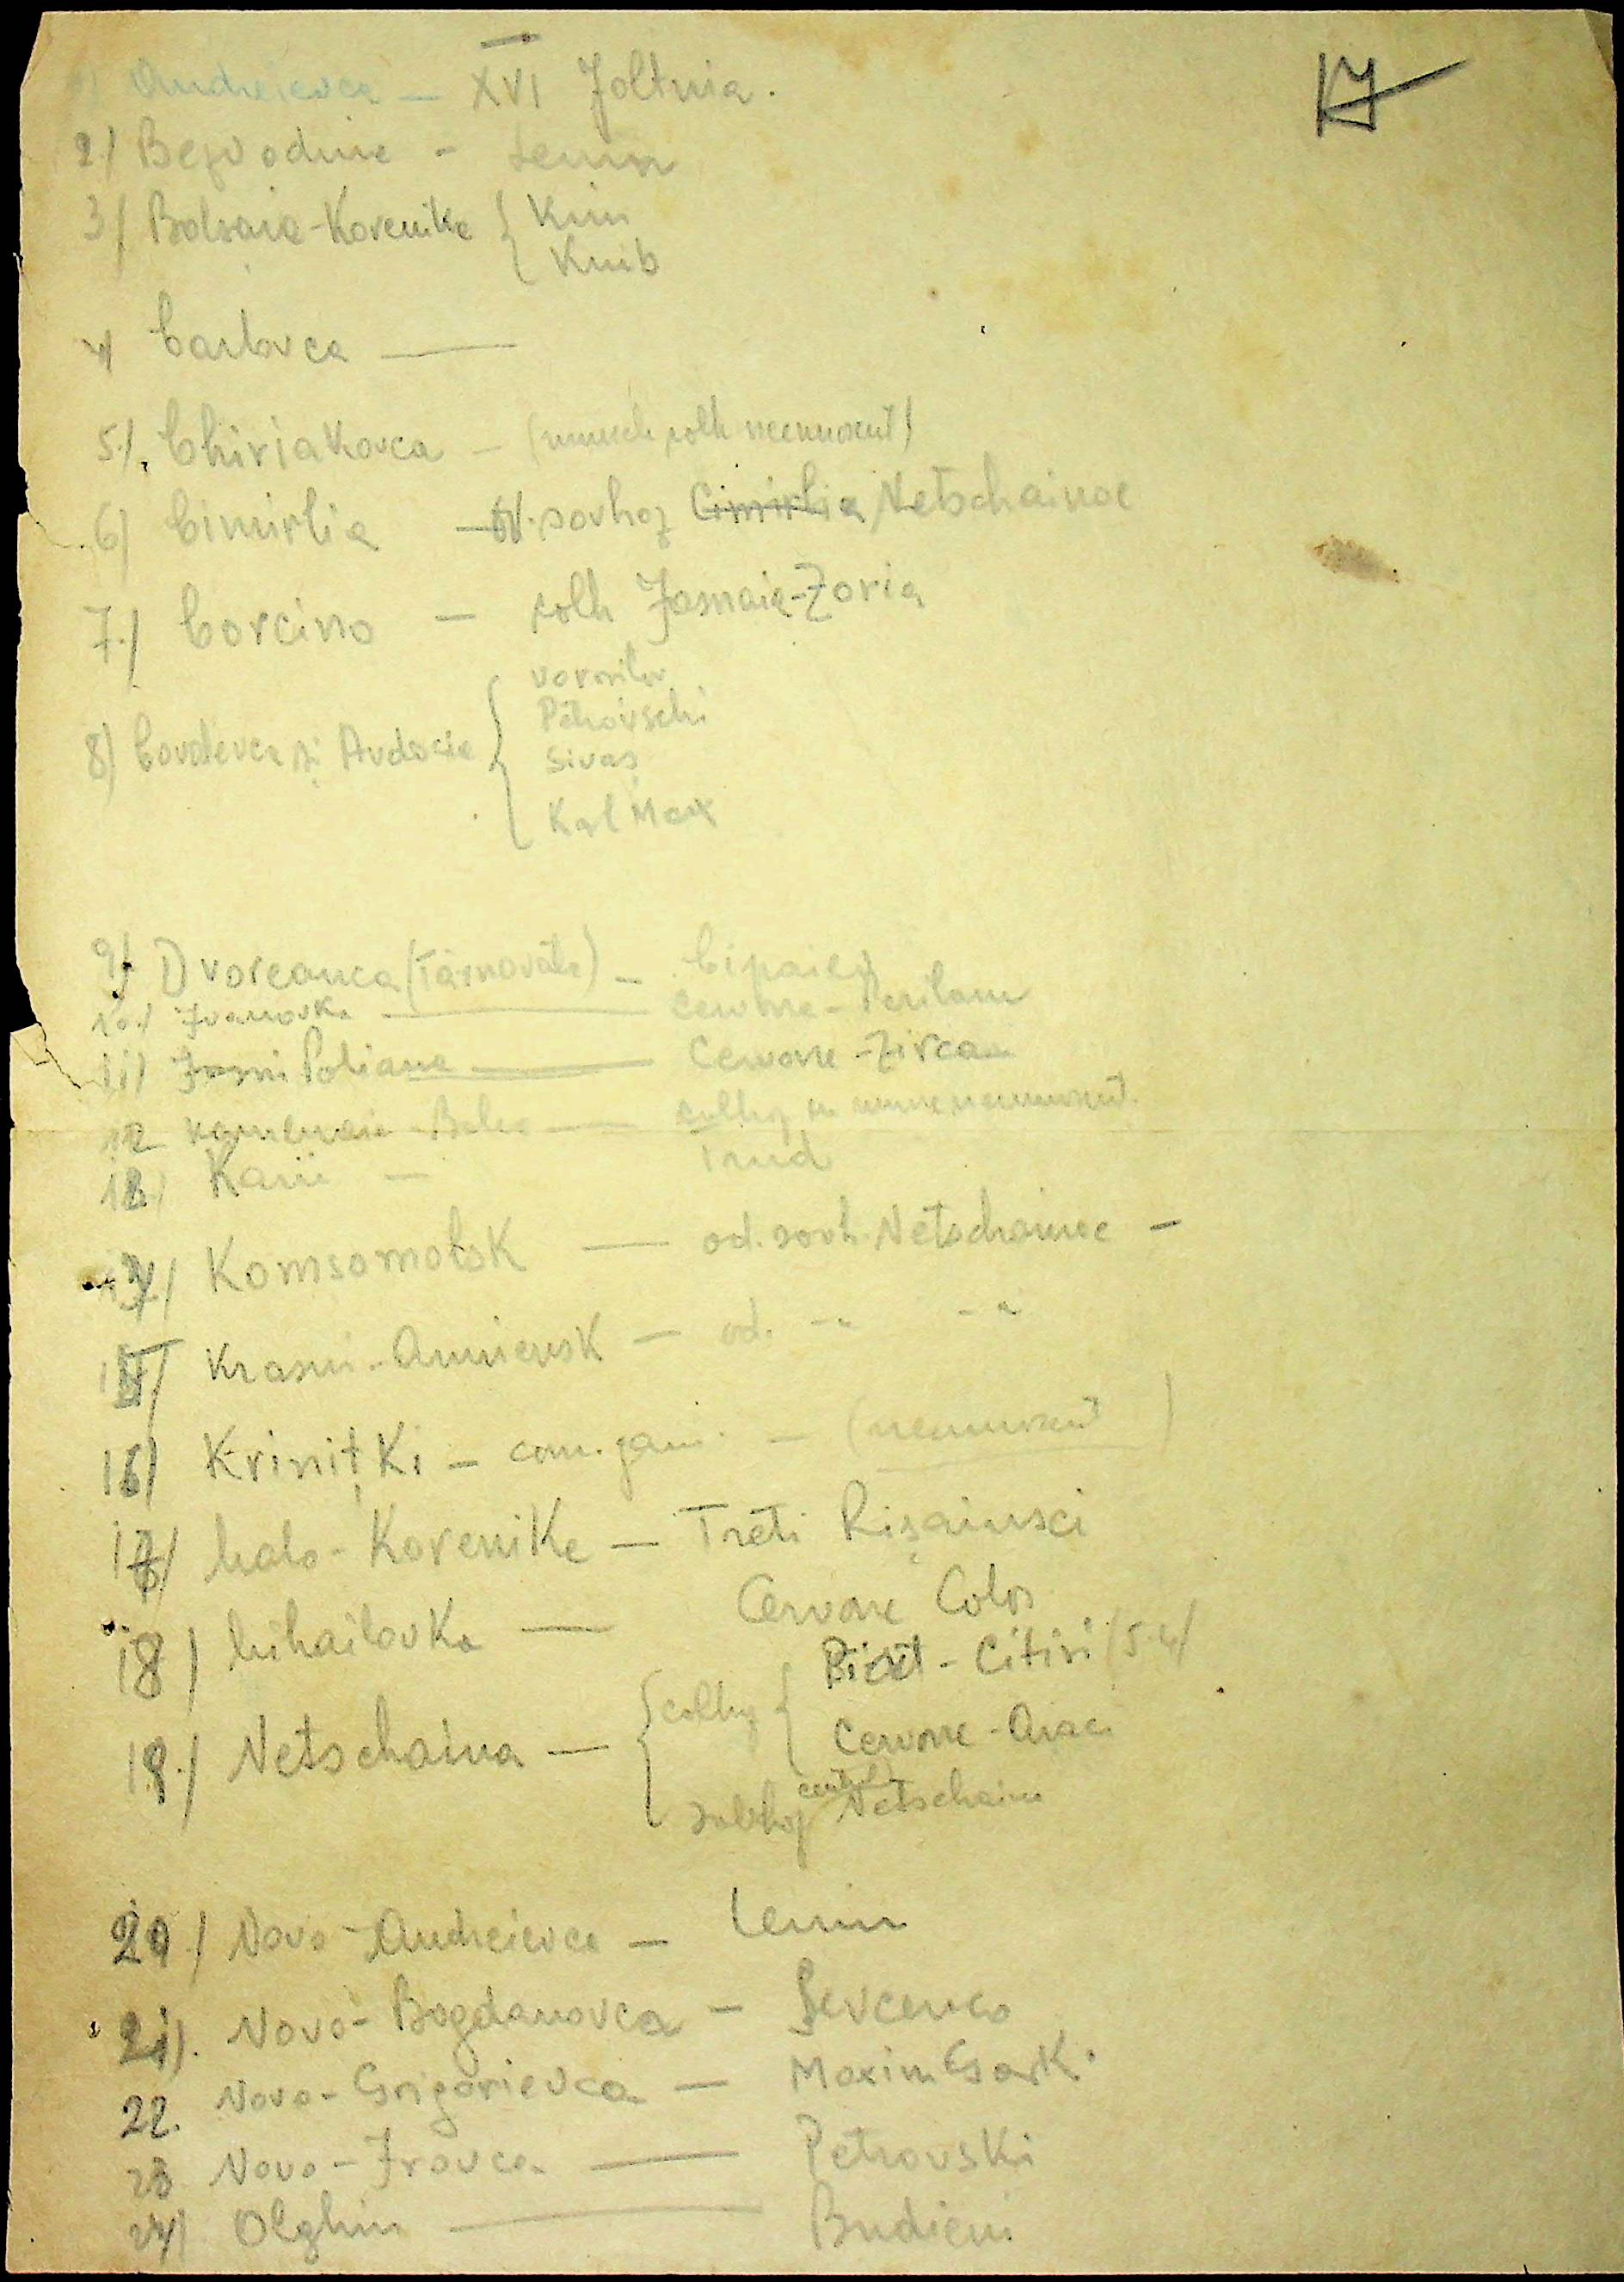 17
1) Andreievca — XVI Joltnia.
2.) Bezvodnie - Lenin
3) Bolsaia-Korenika { Kim
Knib
4) Carlovca —
5.) Chiriakovca — (numele colh necunoscut)
6) Cimirlia — sovhoz Cimirlia Netschainoe
7.) Corcino — colh Jasnaia-Zoria
8) Covalevca și Avdocia { Vorosilov
Petrovschi
Sivaș
Karl Marx
9) Dvoreanca (Târnovata) —
10.) Ivanovka — Cervone-
11) Jasni Poliana — Cervone-Zirca
12 Kamenaia-Balca — colhoz cu nume necunoscut.
13.) Karii — Trud
14) Komsomolsk — od. sovh. Netschainoe -
15) Krasni-Armiensk — od. -"- -"
16) Krinițki — com. jam. — (necunoscut)
17) Malo-Korenike — Treti Rișaiusci
18) Mihailovka — Cervone Colos
19.) Netschaina — { colhoz { - Citiri (5.4)
Cervone-
sovhoz central Netschain
20.) Novo-Andreievca — Lenin
21). Novo-Bogdanovca — Șevcenco
22. Novo-Grigorievca — Maxim Gorki
23 Novo- — Petrovski
24) Olghin — Budieni